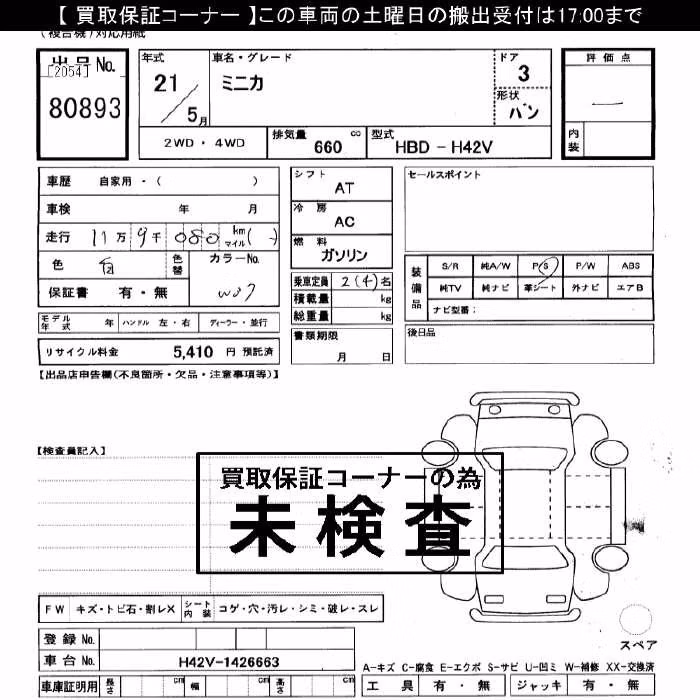 【 買取保証コーナー 】この車両の土曜日の搬出受付は17:00まで
(複合機)対応用紙
出品No.
[2054]
80893
年式
21
5月
車名・グレード
ミニカ
ドア
3
形状
バン
評価点
内装
2WD・4WD
排気量 660 cc
型式 HBD - H42V
車歴 自家用・( )
車検 年 月
走行 11万 9千 080 km マイル ( )
色 白 色替 カラーNo.
W07
保証書 有・無
シフト
AT
冷房
AC
燃料
ガソリン
乗車定員 2(4)名
積載量 kg
総重量 kg
書類期限
月 日
セールスポイント
装備品
S/R 純A/W P/S P/W ABS
純TV 純ナビ 革シート 外ナビ エアB
ナビ型番:
後日品
モデル年式 年 ハンドル 左・右 ディーラー・並行
リサイクル料金 5,410 円 預託済
【出品店申告欄(不良箇所・欠品・注意事項等)】
【検査員記入】
買取保証コーナーの為
未検査
FW キズ・トビ石・割レX シート内装 コゲ・穴・汚レ・シミ・破レ・スレ
登録 No.
車台 No. H42V-1426663
車庫証明用 長さ cm 幅 cm 高さ cm
スペア
A-キズ C-腐食 E-エクボ S-サビ U-凹ミ W-補修 XX-交換済
工具 有・無 ジャッキ 有・無